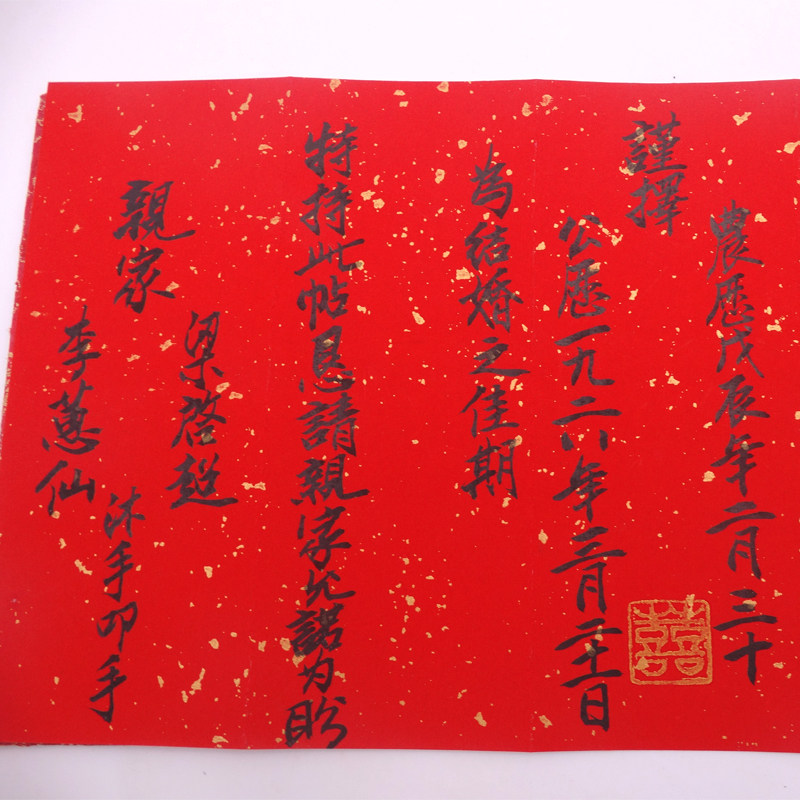 農歷戊辰年二月三十
謹擇
公歷一九二八年三月二十一日
為結婚之佳期
特持此帖恳請親家允諾为盼
親家
梁啓超
李蕙仙
沐手叩手
囍